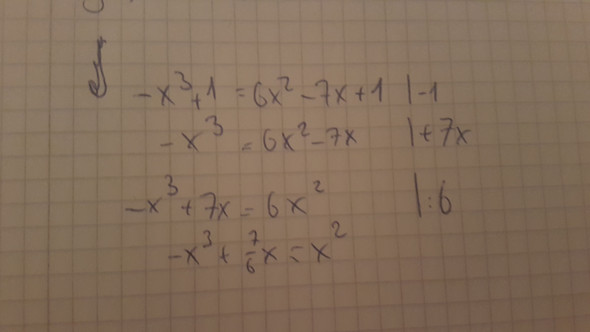 -x³+1 = 6x²-7x+1 |-1
-x³ = 6x²-7x |+7x
-x³+7x = 6x² |:6
-x³+7/6x = x²